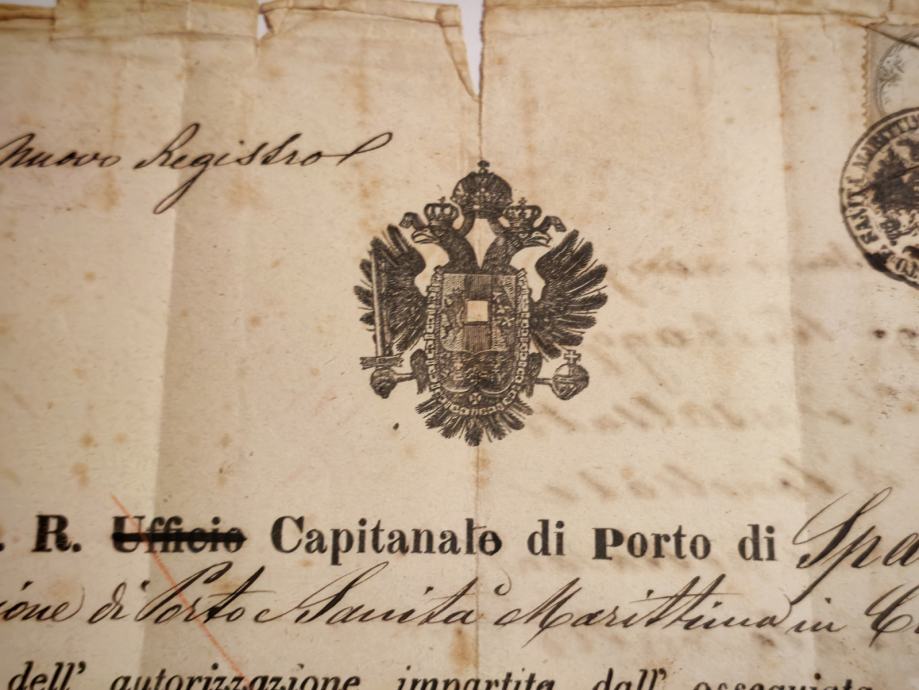 Nuovo Registro
SANITÀ MARITTIM
. R. Ufficio Capitanato di Porto di Spa
ione di Porto e Sanità Marittima in C
dell' autorizzazione impartita dall' ossequiata